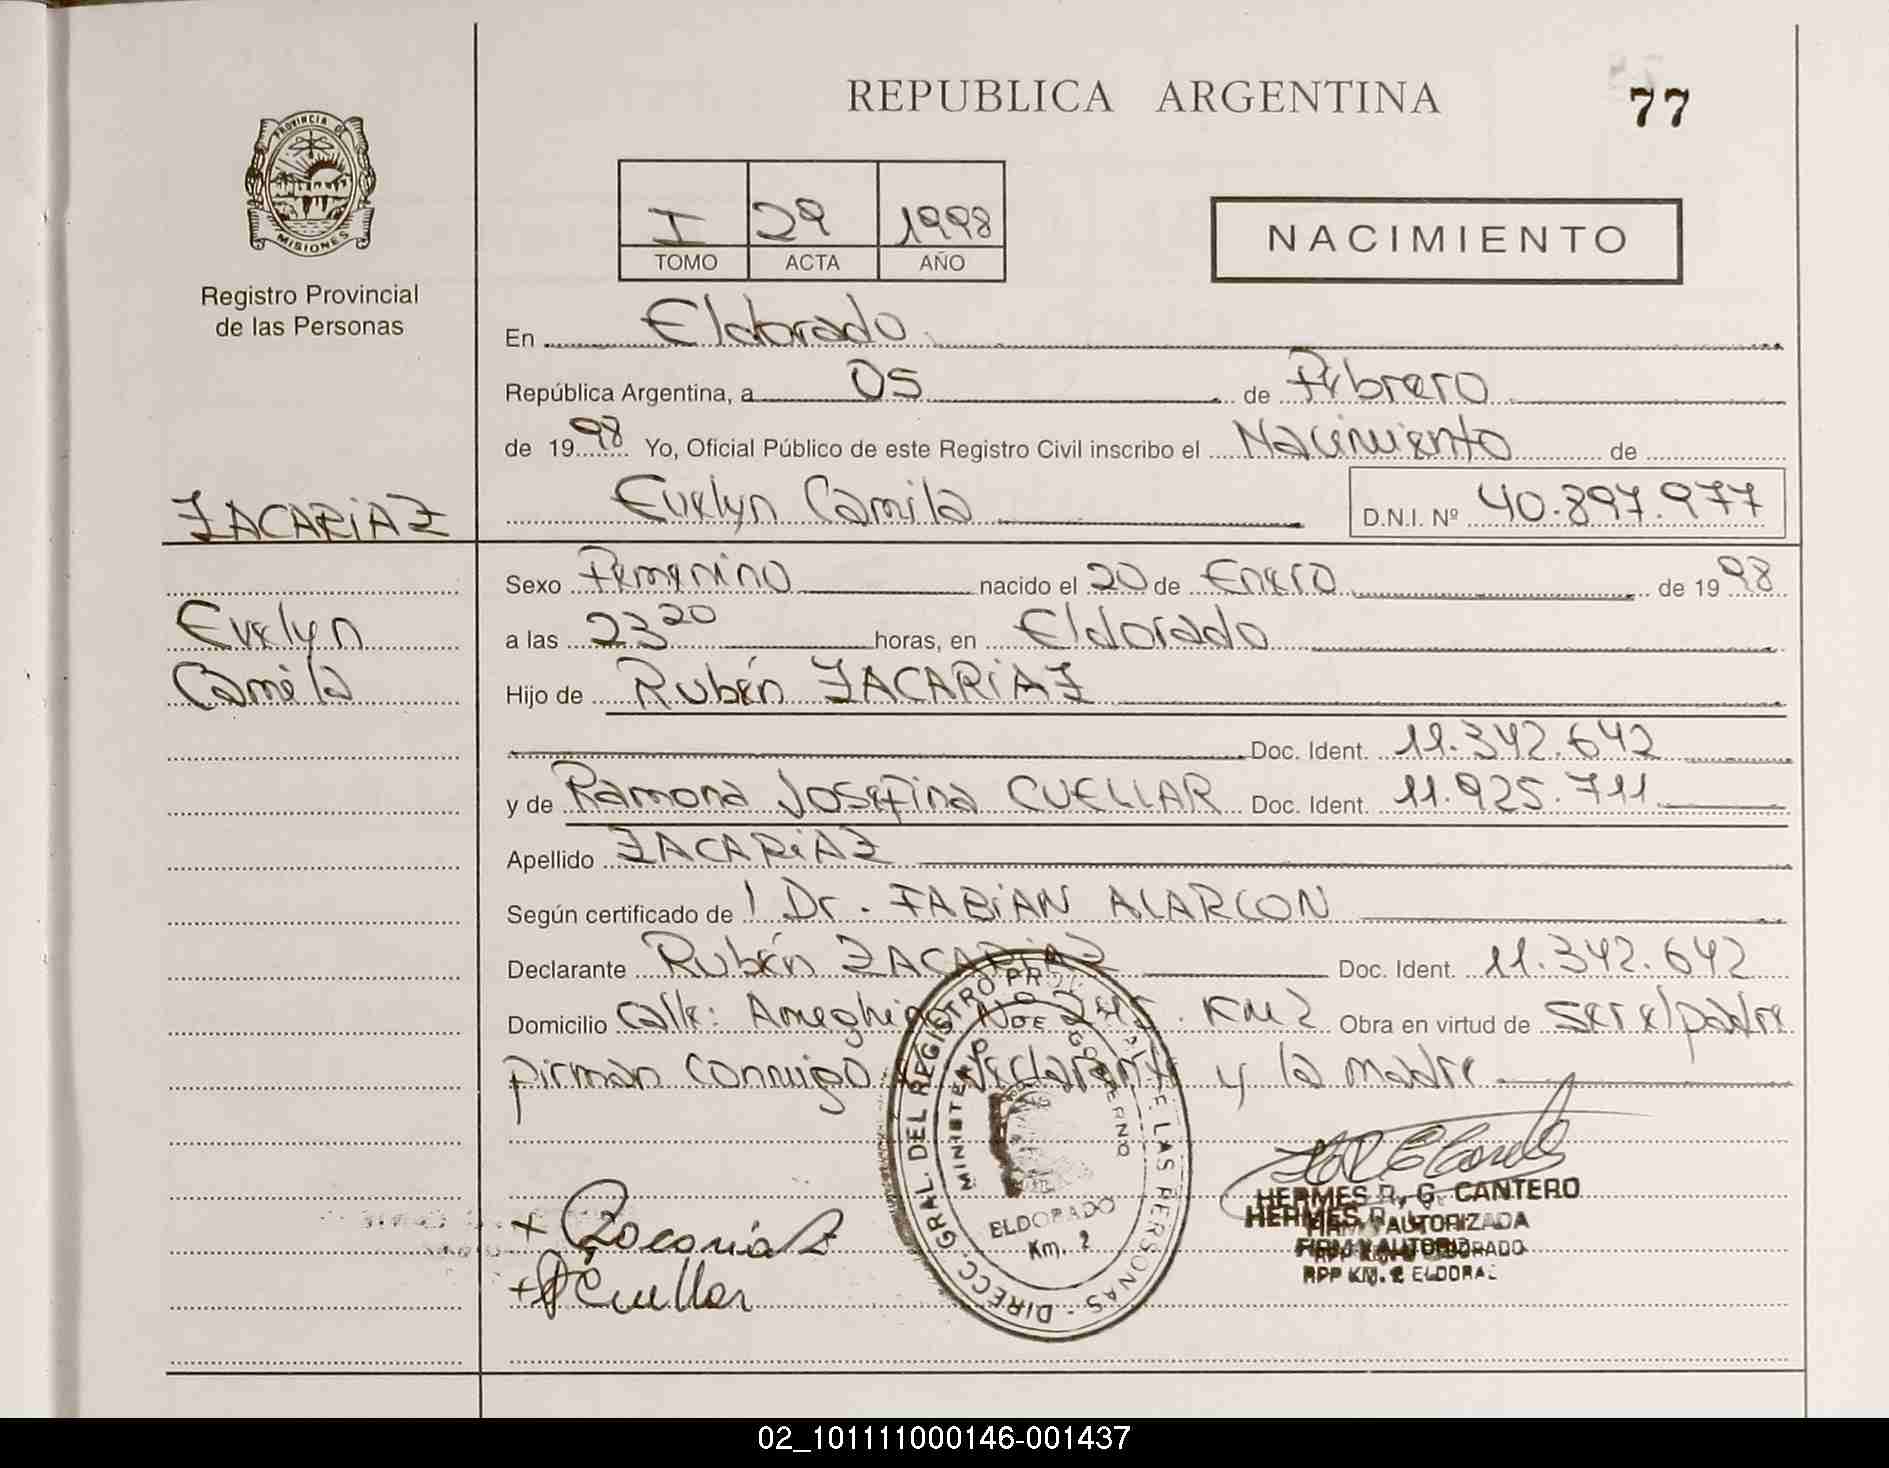 REPUBLICA ARGENTINA
77
PROVINCIA DE
MISIONES
Registro Provincial
de las Personas
I 29 1998
TOMO ACTA AÑO
NACIMIENTO
En Eldorado
República Argentina, a 05 de Febrero
de 1998 Yo, Oficial Público de este Registro Civil inscribo el Nacimiento de
ZACARIAZ
Evelyn Camila
D.N.I. Nº 40.897.977
Sexo Femenino nacido el 20 de Enero de 1998
Evelyn
a las 23 20 horas, en Eldorado
Camila
Hijo de Rubén ZACARIAZ
Doc. Ident. 11.342.642
y de Ramona Josefina CUELLAR Doc. Ident. 11.925.711
Apellido ZACARIAZ
Según certificado de Dr. FABIAN ALARCON
Declarante Rubén ZACARIAZ Doc. Ident. 11.342.642
Domicilio Calle: Ameghino Nº 245. KM 2 Obra en virtud de ser el padre
firman conmigo declarante y la madre
DIRECC. GRAL. DEL REGISTRO PROV. DE LAS PERSONAS
MINISTERIO DE GOBIERNO
ELDORADO
Km. 2
+ Zacariaz
+ R Cuellar
HERMES R. G. CANTERO
HERMES R.
FIRMA AUTORIZADA
RPP KM. 2 ELDORADO
02_101111000146-001437